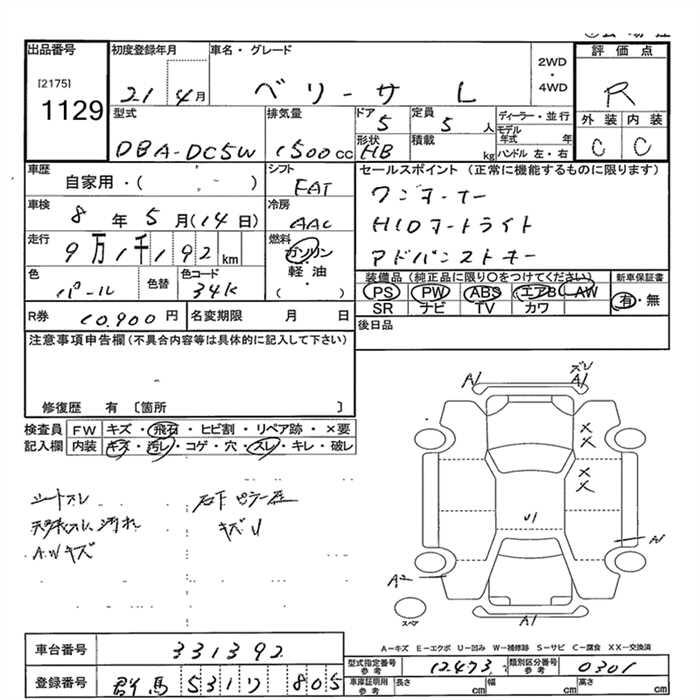 出品番号
[2175]
1129
初度登録年月
21 4月
車名・グレード
ベリーサ L
2WD
・
4WD
評価点
R
外装 内装
C C
型式
DBA-DC5W
排気量
1500cc
ドア
5
形状
HB
定員
5 人
積載
kg
ディーラー・並行
モデル年式 年
ハンドル 左・右
車歴
自家用・( )
シフト
FAT
車検
8年5月(14日)
冷房
AAC
走行
9万1千192km
燃料
ガソリン
軽油
( )
色
パール
色替
色コード
34K
セールスポイント(正常に機能するものに限ります)
ワンオーナー
HIDヘッドライト
アドバンストキー
装備品(純正品に限り○をつけてください)
PS PW ABS エアB AW
SR ナビ TV カワ
新車保証書
有・無
R券
10.900円
名変期限 月 日
後日品
注意事項申告欄(不具合内容等は具体的に記入して下さい)
修復歴 有 〔箇所 〕
検査員
記入欄
FW キズ・飛石・ヒビ割・リペア跡・×要
内装 キズ・汚レ・コゲ・穴・スレ・キレ・破レ
シートスレ
天張スレ、汚れ
A.Wキズ
右下ピラー座
キズU
A1
ズレ
A1
××
××
U1
A1
A2
A1
スペア
A-キズ E-エクボ U-凹み W-補修跡 S-サビ C-腐食 XX-交換済
車台番号
331392
登録番号
群馬 531 ワ 805
型式指定番号
参考
12473
類別区分番号
参考
0301
車庫証明用
参考
長さ cm
幅 cm
高さ cm